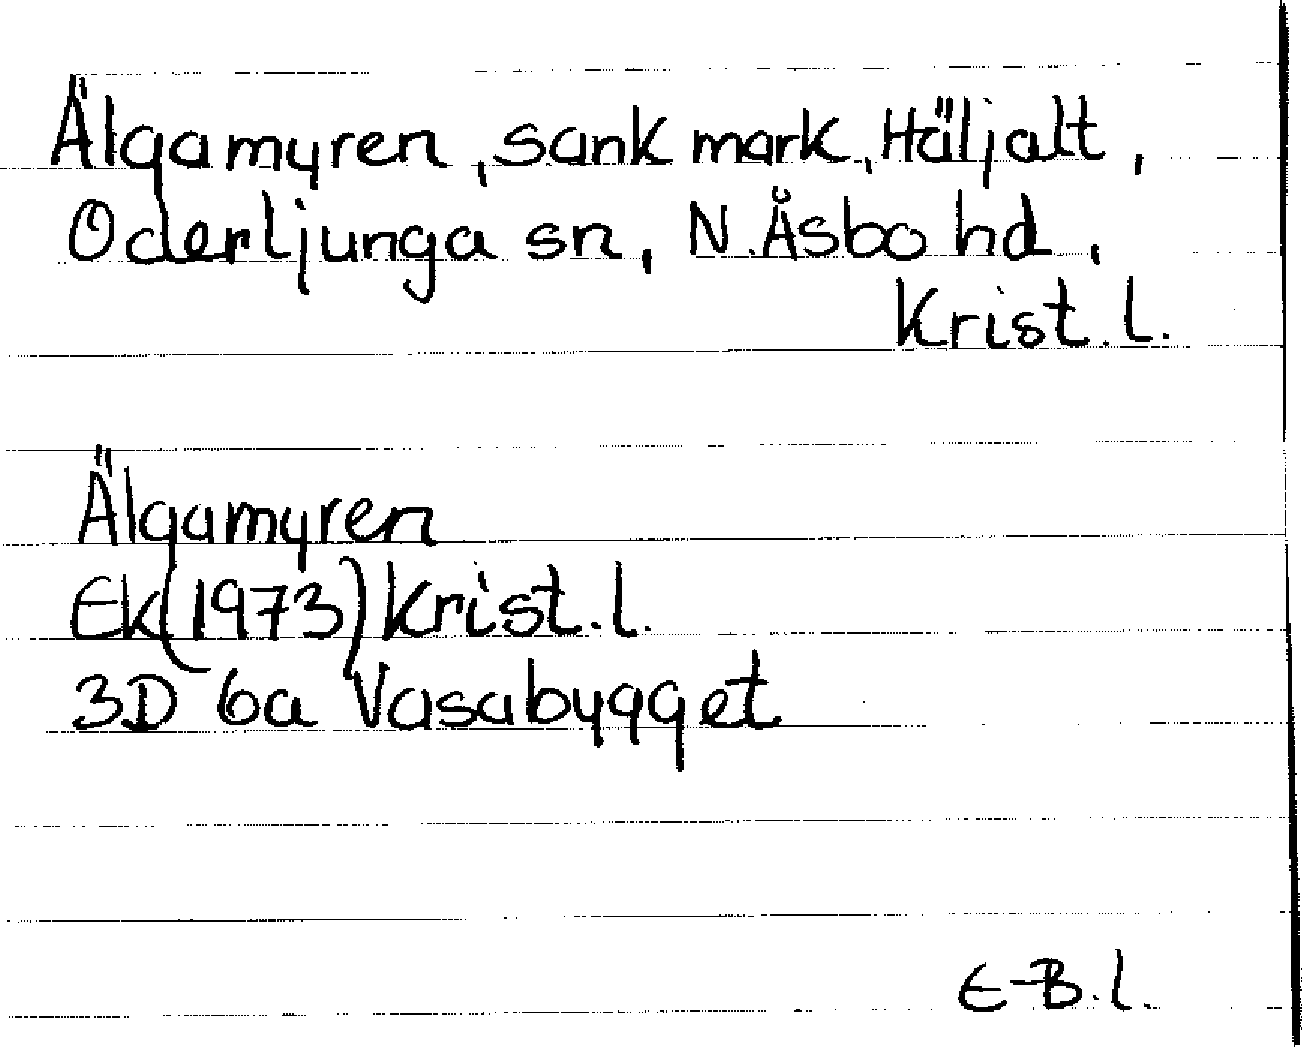 Älgamyren, sank mark, Häljalt,
Oderljunga sn, N. Åsbo hd,
Krist. l.
Älgamyren
Ek (1973) Krist. l.
3D 6a Vasabygget
E-B. l.